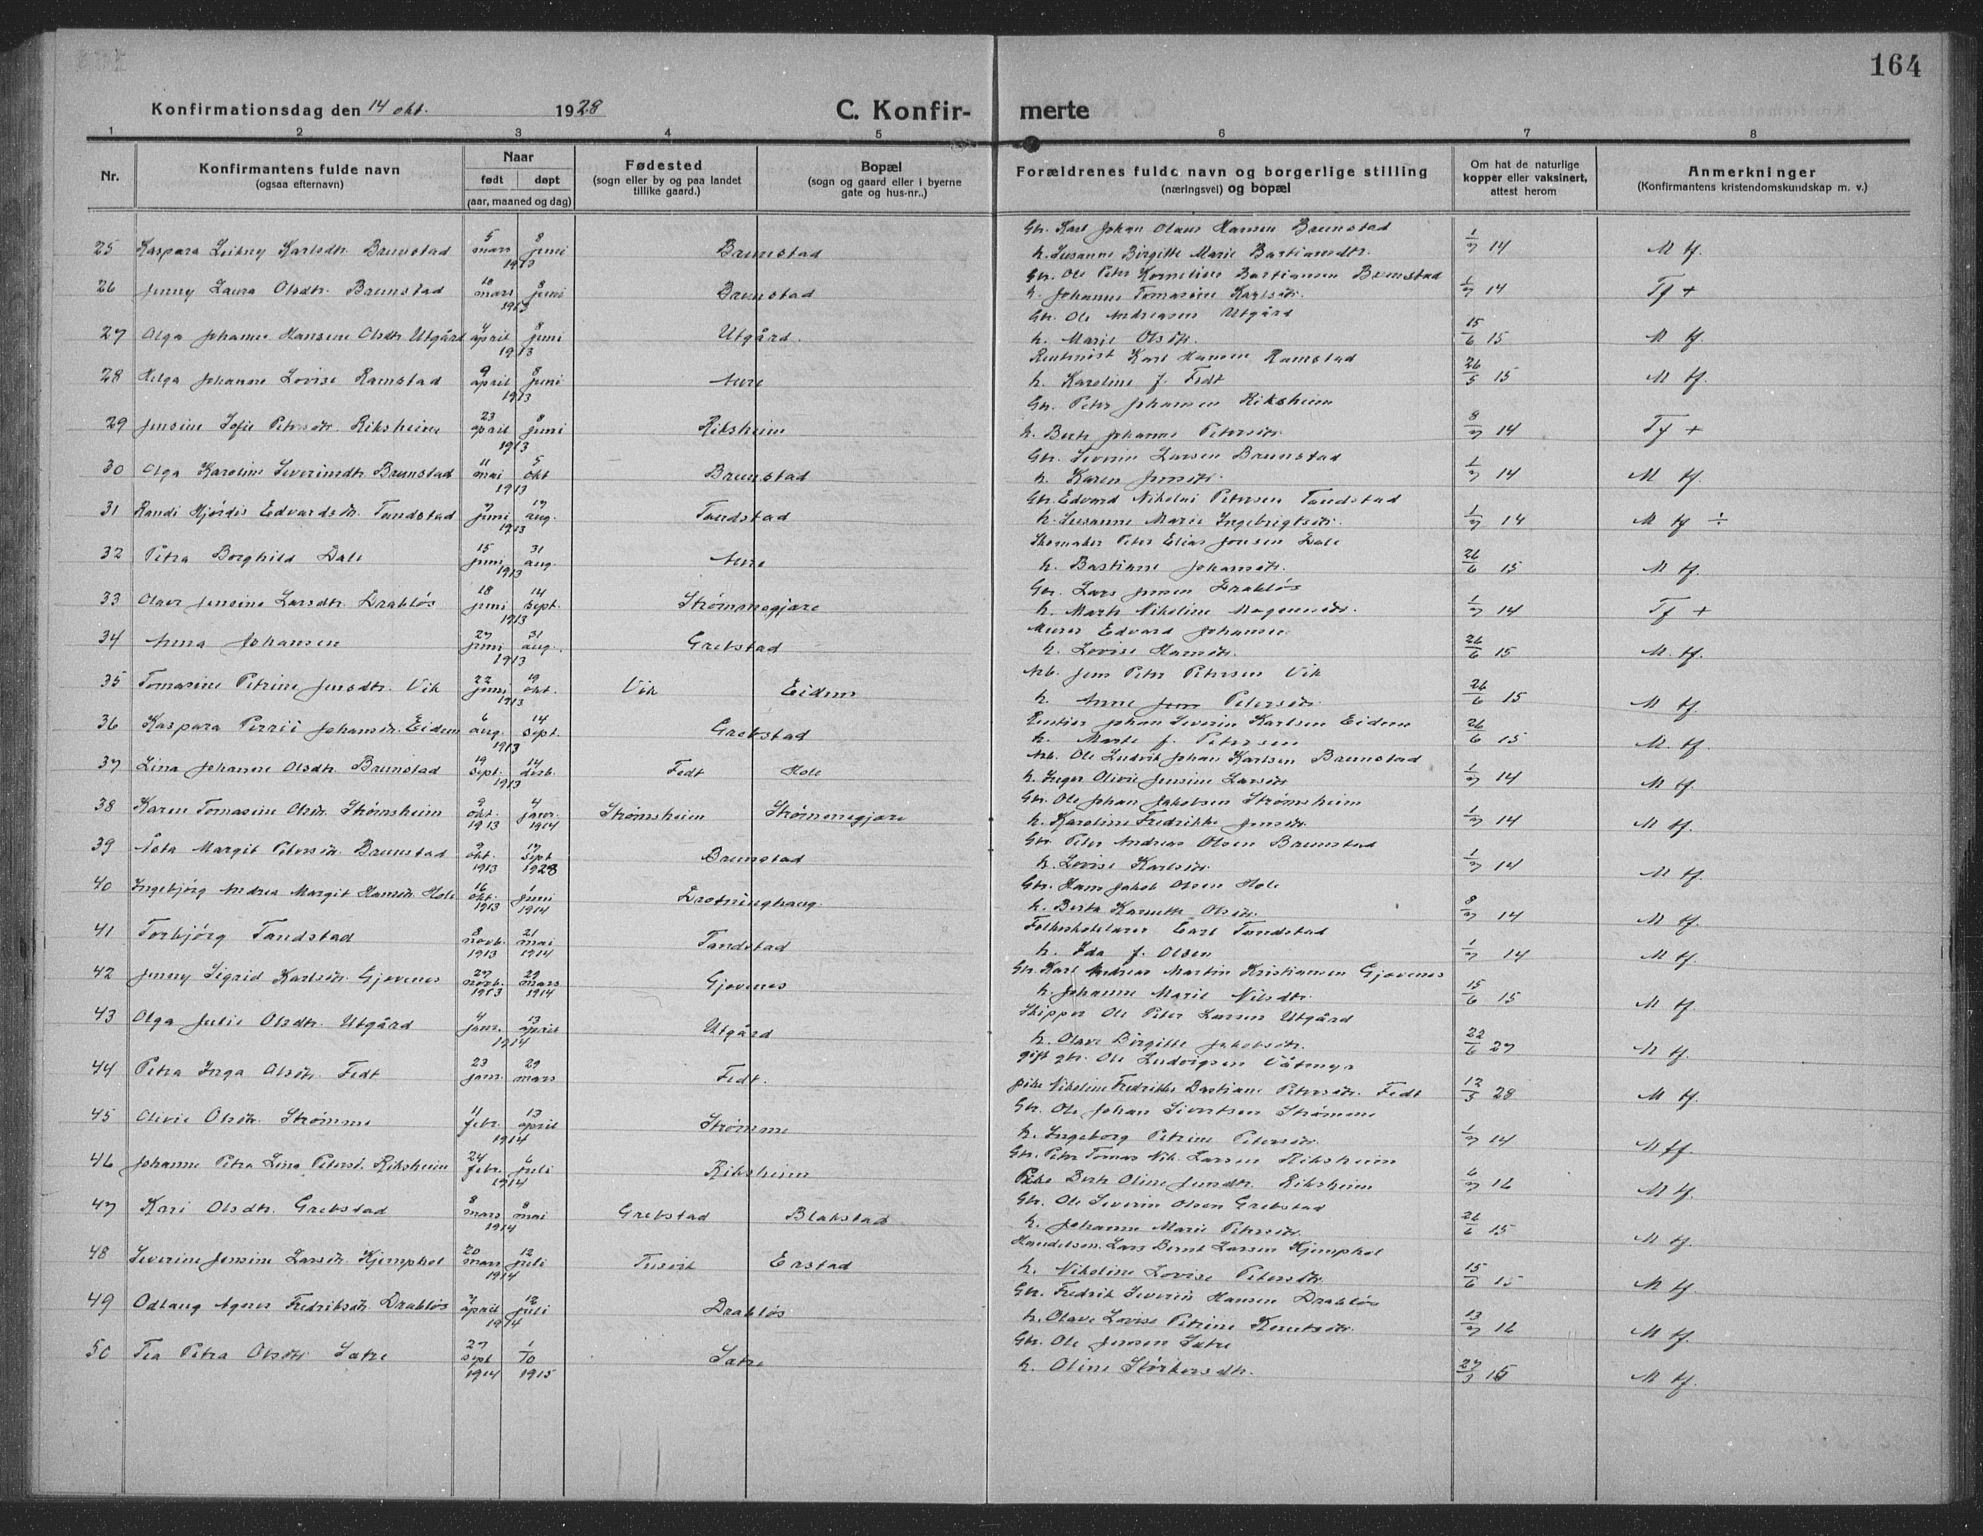 164
Konfirmationsdag den 14 okt. 1928
C. Konfir- merte
1 2 3 4 5 6 7 8
Nr.
Konfirmantens fulde navn
(ogsaa efternavn)
Naar
født døpt
(aar, maaned og dag)
Fødested
(sogn eller by og paa landet
tillike gaard.)
Bopæl
(sogn og gaard eller i byerne
gate og hus-nr..)
Forældrenes fulde navn og borgerlige stilling
(næringsvei) og bopæl
Om hat de naturlige
kopper eller vaksinert,
attest herom
Anmerkninger
(Konfirmantens kristendomskundskap m. v.)
25 Kaspara Karlsdtr. Brunstad 5 mars 8 juni 1913 Brunstad Gbr. Karl Johan Olaus Hansen Brunstad
h. Susanne Birgitte Marie Bastiansdtr. 1/7 14 M tf.
26 Jenny Laura Olsdtr. Brunstad 10 mars 8 juni 1913 Brunstad Gbr. Ole Peter Kornelius Bastiansen Brunstad
h. Johanne Tomasine Karlsdtr. 1/7 14 Tf +
27 Olga Johanne Hansine Olsdtr. Utgård 4 april 8 juni 1913 Utgård. Gbr. Ole Andreasen Utgård
h. Marie Olsdtr. 15/6 15 M tf.
28 Helga Johanne Lovise Ramstad 9 april 8 juni 1913 Aure Karl Hansen Ramstad
h. Karoline f. Fedt 26/5 15 M tf.
29 Jensine Sofie Petersdtr. Riksheim 23 april 8 juni 1913 Riksheim Gbr. Peter Johansen Riksheim
h. Johanne Petersdtr. 8/7 14 Tf +
30 Olga Karoline Severinsdtr. Brunstad 11 mai 5 okt 1913 Brunstad Gbr. Severin Larsen Brunstad
h. Karen Jensdtr. 1/7 14 M tf.
31 Randi Hjørdis Edvardsdtr. Tandstad 7 juni 17 aug. 1913 Tandstad Gbr. Edvard Nikolai Petersen Tandstad
h. Susanne Marie Ingebrigtsdtr. 1/7 14 M tf ÷
32 Petra Borghild Dale 15 juni 31 aug. 1913 Aure Skomaker Peter Elias Jonsen Dale
h. Bastiane Johansdtr. 26/6 15 M tf.
33 Jensine Larsdtr. Drabløs 18 juni 14 sept. 1913 Strømmegjære Gbr. Lars Jensen Drabløs
h. Nikoline 1/7 14 Tf +
34 Anna Johansen 27 juni 31 aug. 1913 Grebstad Murer Edvard Johansen
h. Lovise Hansdtr. 26/6 15 M. tf.
35 Tomasine Petrine Jensdtr. Vik 22 juni 19 okt. 1913 Vik Eidem Arb. Jens Peter Petersen Vik
h. Anne Petersdtr. 26/6 15 M tf.
36 Kaspara Johansdtr. Eidem 6 aug. 14 sept. 1913 Grebstad Rentier Johan Severin Karlsen Eidem
h. Marte f. Petersen 26/6 15 M. tf.
37 Lina Johanne Olsdtr. Brunstad 19 sept. 14 desb. 1913 Fedt Hole Arb. Ole Ludvik Johan Karlsen Brunstad
h. Inger Olivie Jensine Larsdtr 1/7 14 M tf.
38 Karen Tomasine Olsdtr. Strømsheim 9 okt. 1913 4 janr. 1914 Strømsheim Strømmegjære Gbr. Ole Johan Jakobsen Strømsheim
h. Karoline Fredrikke Jensdtr. 1/7 14 M tf.
39 Åsta Margit Petersdtr. Brunstad 9 okt. 1913 17 sept 1928 Brunstad Gbr. Peter Andreas Olsen Brunstad
h. Lovise Karlsdtr. 1/7 14 M tf.
40 Ingebjørg Andrea Margit Hansdtr. Hole 16 okt. 1913 1 juni 1914 Drotninghaug. Gbr. Hans Jakob Olsen Hole
h. Berta Olsdtr. 8/7 14 M tf.
41 Torbjørg Tandstad 8 novb. 1913 21 mai 1914 Tandstad Folkeskolelærer Carl Tandstad
h. Ida f. Olsen 1/7 14 M tf.
42 Jenny Sigrid Karlsdtr. Gjævenes 27 novb. 1913 29 mars 1914 Gjævenes Gbr. Karl Andreas Martin Kristiansen Gjævenes
h. Johanne Marie Nilsdtr. 15/6 15 M tf.
43 Olga Julie Olsdtr. Utgård 4 janr. 13 april 1914 Utgård Skipper Ole Peter Larsen Utgård
h. Olave Birgitte Jakobsdtr. 22/6 27 M tf.
44 Petra Inga Olsdtr. Fedt 23 janr. 29 mars Fedt. gift gbr. Ole Ludvigsen
pike Nikoline Fredrikke Bastiane Petersdtr. Fedt 12/3 28 M tf.
45 Olivie Olsdtr. Strømme 11 febr. 13 april 1914 Strømme Gbr. Ole Johan Sivertsen Strømme
h. Ingeborg Petrine Petersdtr. 1/7 14 M tf.
46 Johanne Petra Lina Petersd. Riksheim 24 febr. 6 juli 1914 Riksheim Gbr. Peter Tomas Nik. Larsen Riksheim
Pike Oline Jensdtr. Riksheim 6/7 16 M tf.
47 Kari Olsdtr. Grebstad 8 mars 8 mai 1914 Grebstad Blakstad Gbr. Ole Severin Olsen Grebstad
h. Johanne Marie Petersdtr. 26/6 15 M tf.
48 Severine Jensine Larsdtr. Kjemphol 20 mars 12 juli 1914 Tusvik Erstad Handelsm. Lars Bernt Larsen Kjemphol
h. Nikoline Lovise Petersdtr. 15/6 15 M tf.
49 Odlaug Agnes Fredriksdtr. Drabløs 7 april 12 juli 1914 Drabløs Gbr. Fredrik Severin Hansen Drabløs
h. Olave Lovise Petrine Knutsdtr. 13/7 16 M tf.
50 Tea Petra Olsdtr. Satre 27 sept 1914 1/10 1915 Satre Gbr. Ole Jensen Satre
h. Oline Størkersdtr. 27/3 16 M tf.